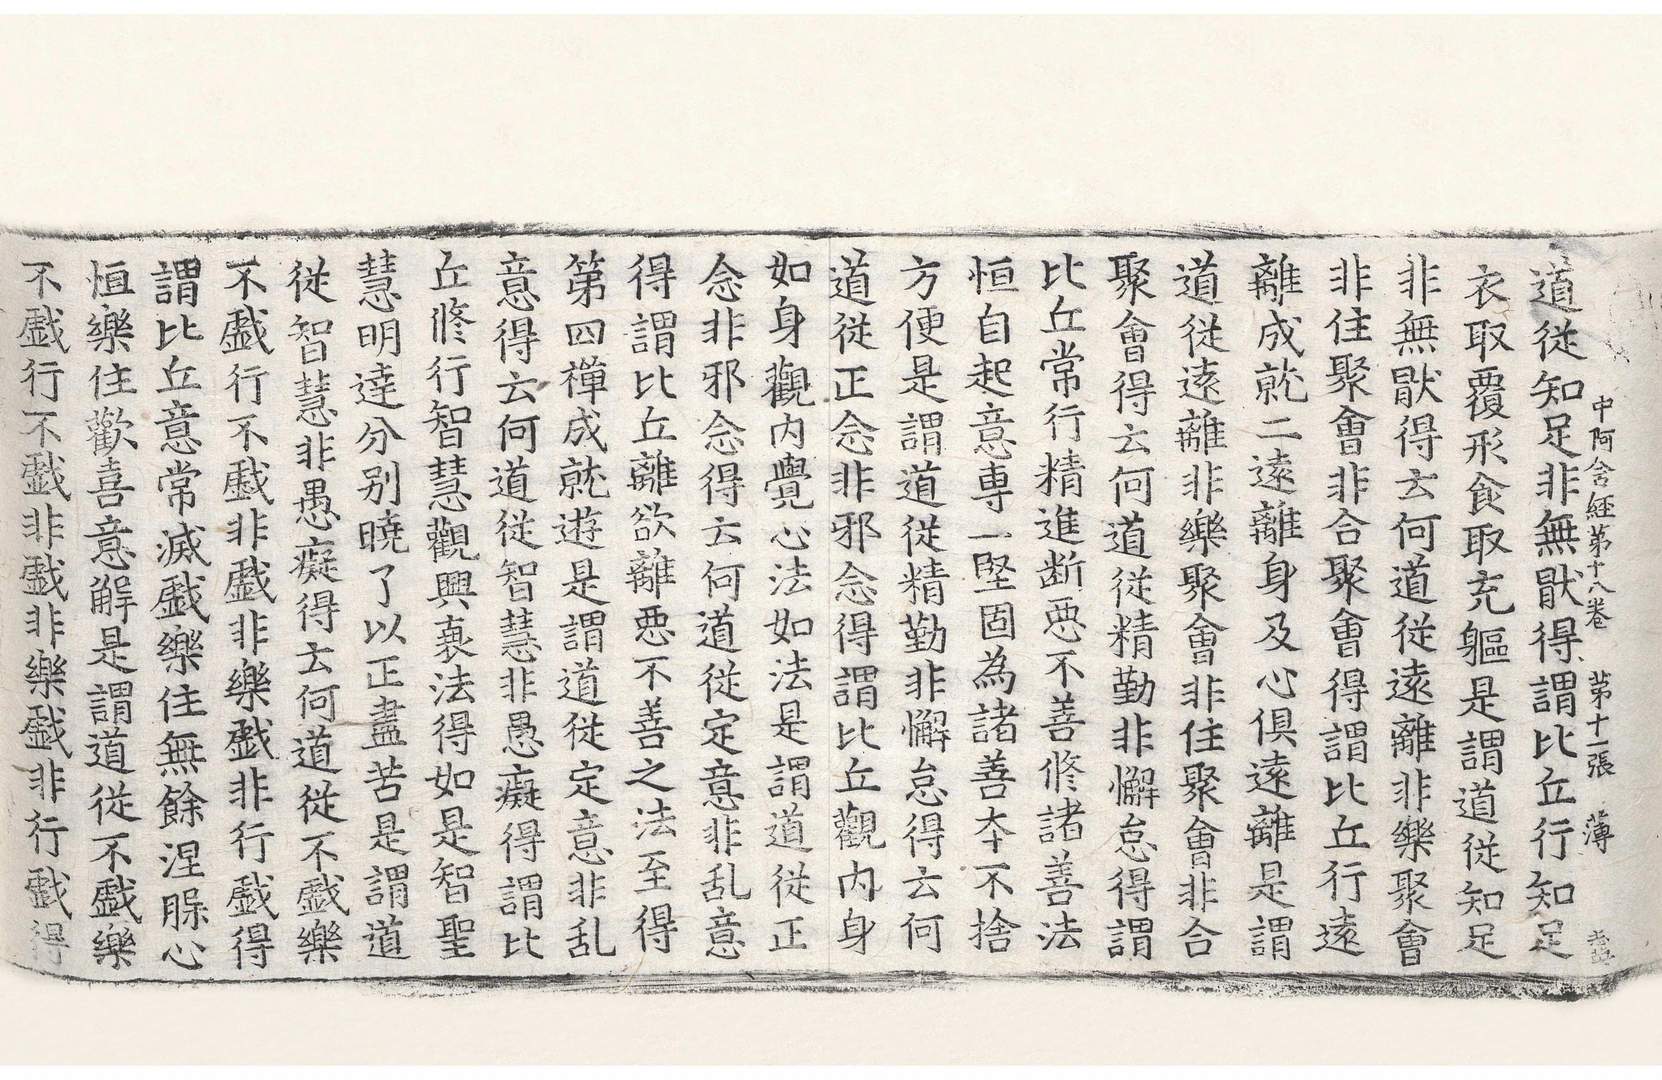 中阿含經第十八卷 第十一張 薄
道從知足非無猒得謂比丘行知足
衣取覆形食取充軀是謂道從知足
非無猒得云何道從遠離非樂聚會
非住聚會非合聚會得謂比丘行遠
離成就二遠離身及心俱遠離是謂
道從遠離非樂聚會非住聚會非合
聚會得云何道從精勤非懈怠得謂
比丘常行精進断惡不善修諸善法
恒自起意專一堅固為諸善夲不捨
方便是謂道從精勤非懈怠得云何
道從正念非邪念得謂比丘觀內身
如身觀內覺心法如法是謂道從正
念非邪念得云何道從定意非乱意
得謂比丘離欲離惡不善之法至得
第四禪成就遊是謂道從定意非乱
意得云何道從智慧非愚癡得謂比
丘修行智慧觀興衰法得如是智聖
慧明達分別曉了以正盡苦是謂道
從智慧非愚癡得云何道從不戲樂
不戲行不戲非戲非樂戲非行戲得
謂比丘意常滅戲樂住無餘涅槃心
恒樂住歡喜意解是謂道從不戲樂
不戲行不戲非戲非樂戲非行戲得